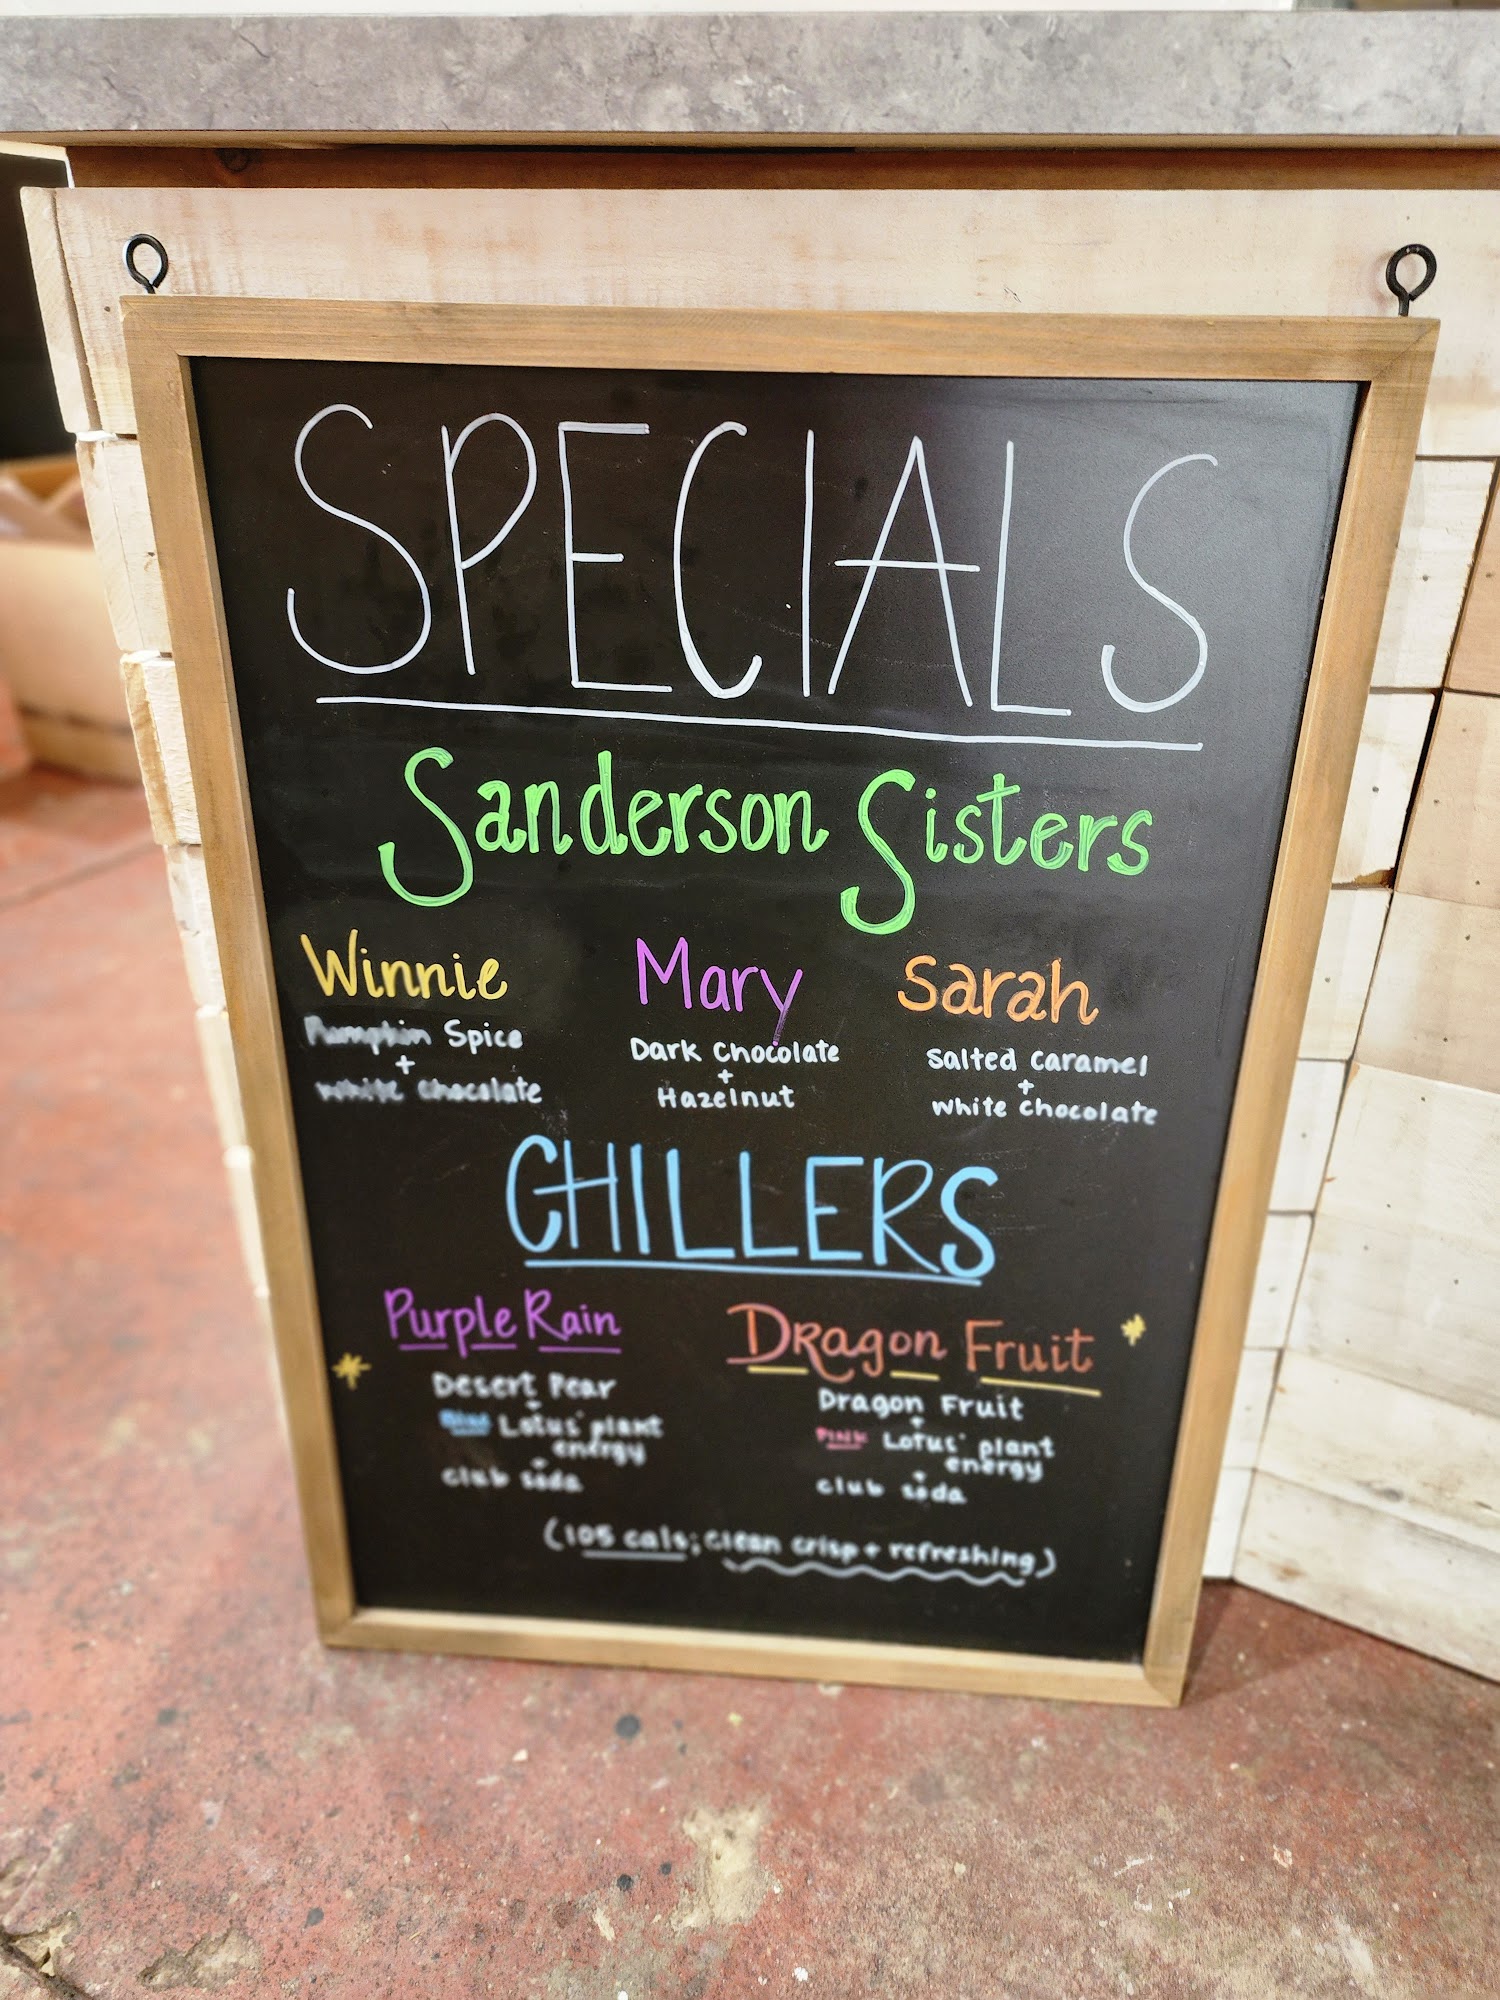 SPECIALS
Sanderson Sisters
Winnie
Pumpkin Spice
+
White chocolate
Mary
Dark Chocolate
+
Hazelnut
Sarah
Salted Caramel
+
White Chocolate
CHILLERS
Purple Rain
Desert Pear
+
Blue Lotus plant
energy
+
club soda
Dragon Fruit
Dragon Fruit
+
PINK Lotus plant
energy
+
club soda
(105 cals; clean crisp + refreshing)